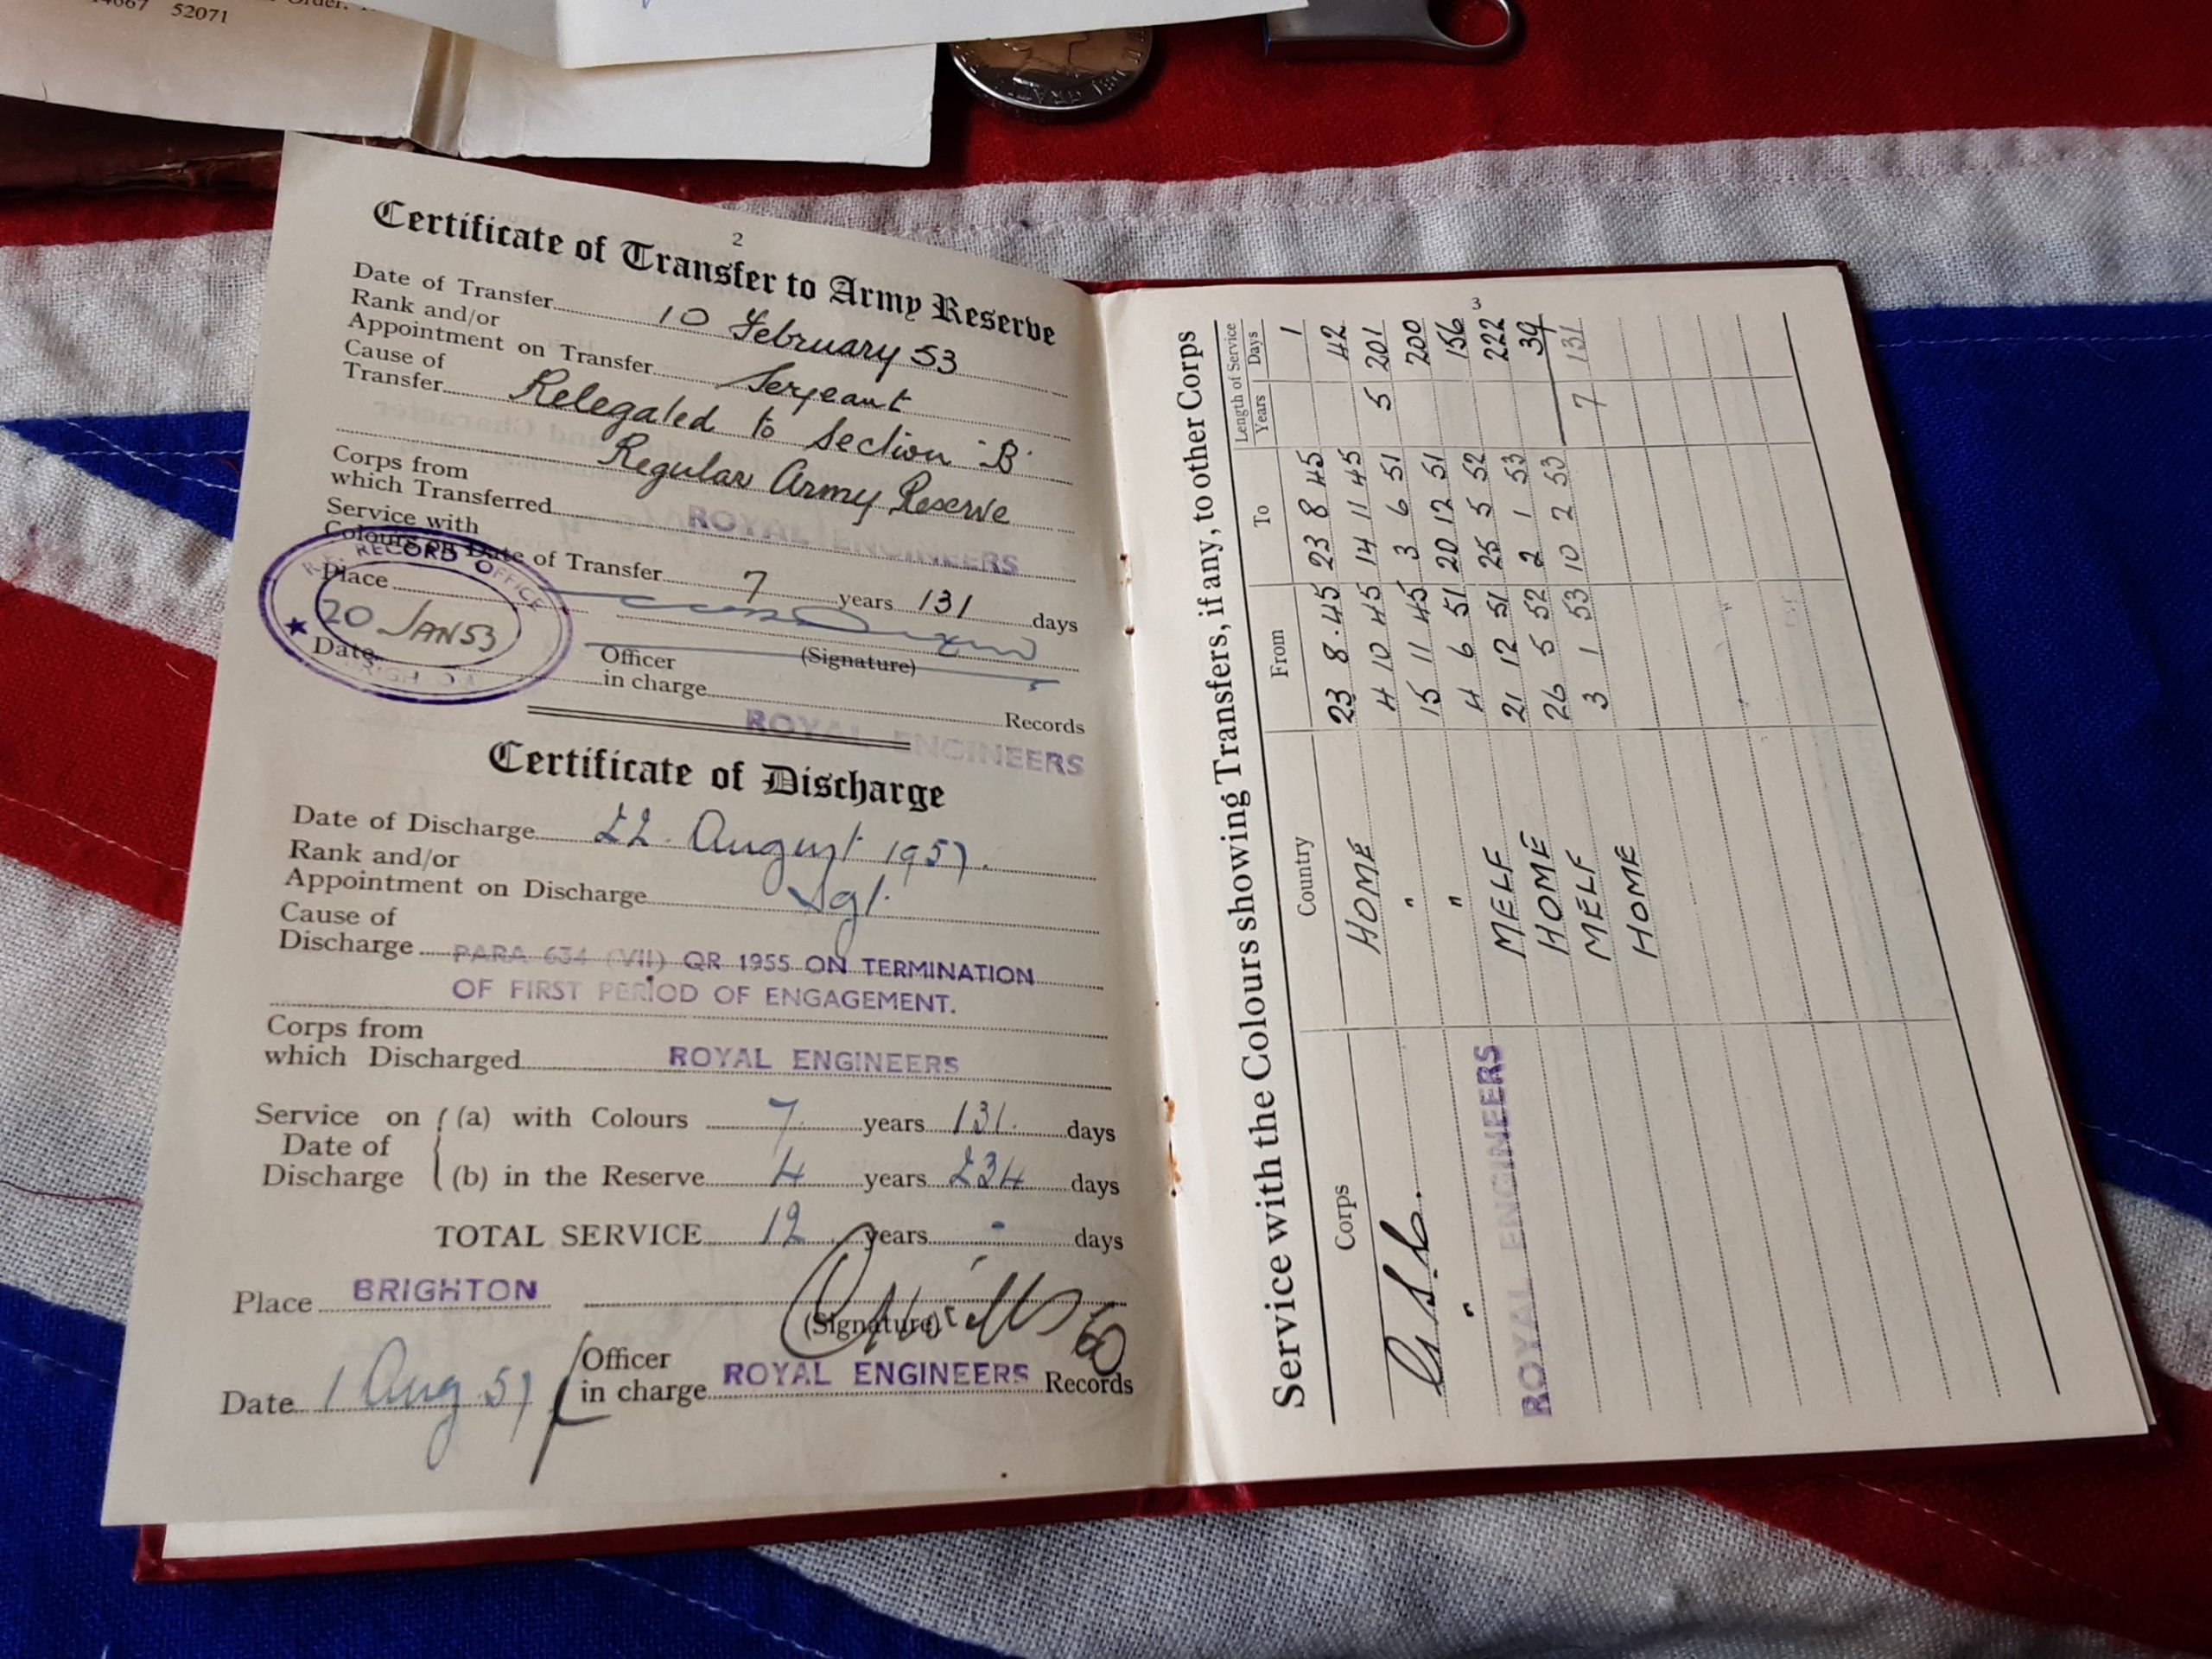 52071
2
Certificate of Transfer to Army Reserve
Date of Transfer 10 February 53
Rank and/or
Appointment on Transfer Serjeant
Cause of
Transfer Relegated to Section "B"
Regular Army Reserve
Corps from
which Transferred ROYAL ENGINEERS
Service with
Colours on Date of Transfer 7 years 131 days
R.E. RECORD OFFICE
Place
20 JAN 53
Date
(Signature)
Officer
in charge Records
ROYAL ENGINEERS
Certificate of Discharge
Date of Discharge 22 August 1957.
Rank and/or
Appointment on Discharge Sgt.
Cause of
Discharge PARA 634 (VII) QR 1955 ON TERMINATION
OF FIRST PERIOD OF ENGAGEMENT.
Corps from
which Discharged ROYAL ENGINEERS
Service on (a) with Colours 7 years 131 days
Date of
Discharge (b) in the Reserve 4 years 234 days
TOTAL SERVICE 12 years - days
Place BRIGHTON
(Signature)
Officer
in charge ROYAL ENGINEERS Records
Date 1 Aug 57
3
Service with the Colours showing Transfers, if any, to other Corps
Corps Country From To Length of Service
Years Days
G.S.C. HOME 23 8 45 23 8 45 1
" " 4 10 45 14 11 45 42
ROYAL ENGINEERS " 15 11 45 3 6 51 5 201
MELF 4 6 51 20 12 51 200
HOME 21 12 51 25 5 52 156
MELF 26 5 52 2 1 53 222
HOME 3 1 53 10 2 53 39
7 131